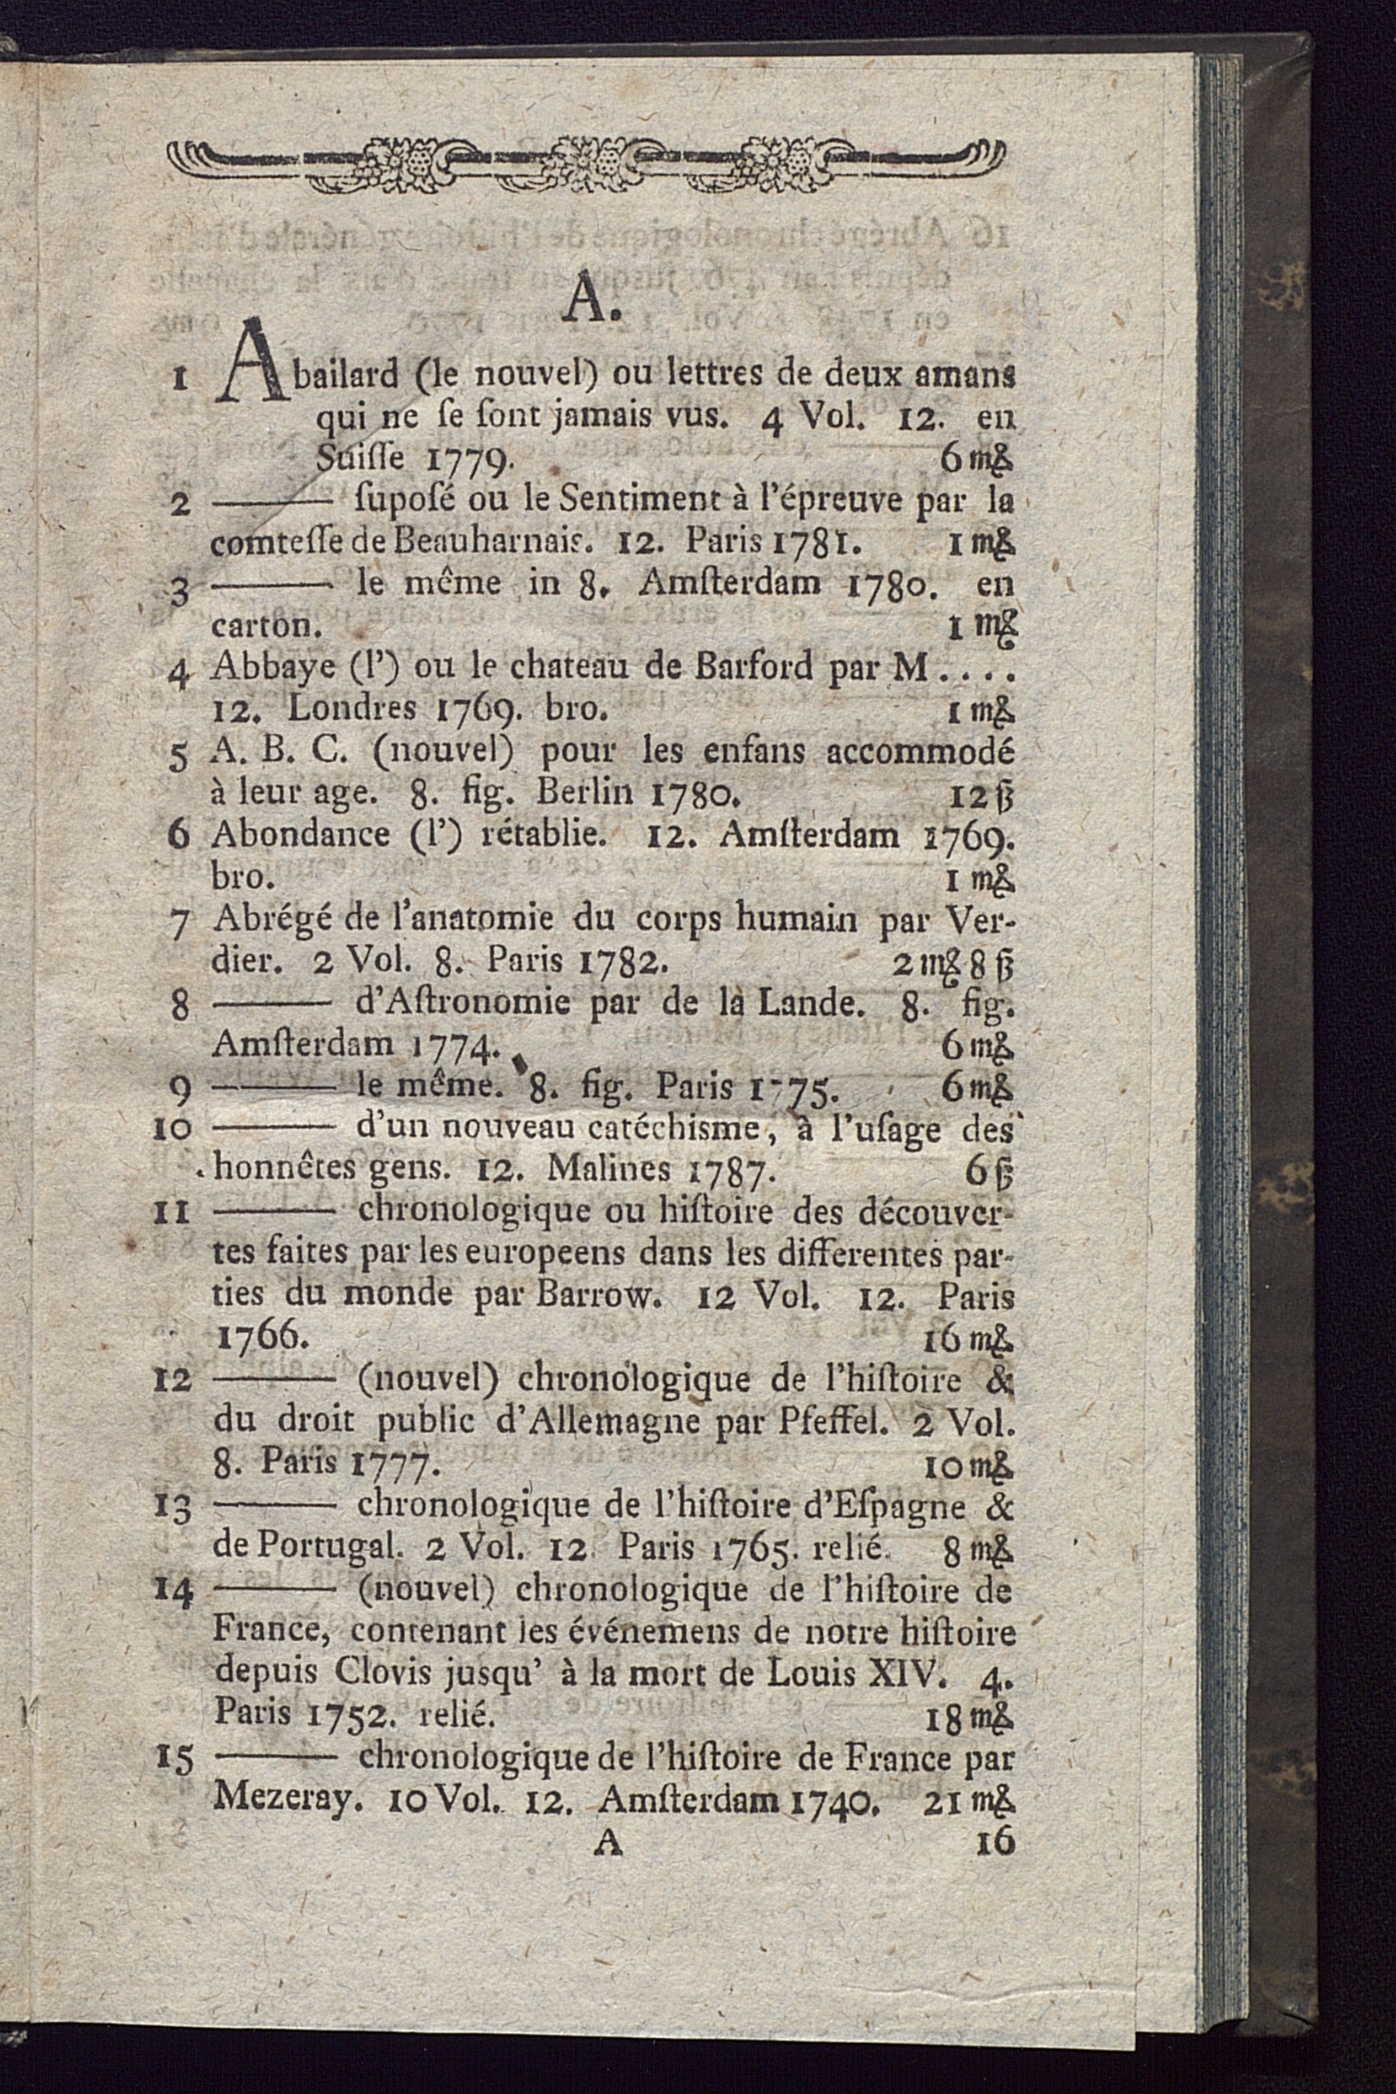 A.
1 Abailard (le nouvel) ou lettres de deux amans
qui ne ſe ſont jamais vus. 4 Vol. 12. en
Suiſſe 1779. 6 m&
2 ——— ſupoſé ou le Sentiment à l'épreuve par la
comteſſe de Beauharnais. 12. Paris 1781. 1 m&
3 ——— le même in 8. Amſterdam 1780. en
carton. 1 m&
4 Abbaye (l') ou le chateau de Barford par M....
12. Londres 1769. bro. 1 m&
5 A. B. C. (nouvel) pour les enfans accommodé
à leur age. 8. fig. Berlin 1780. 12 ß
6 Abondance (l') rétablie. 12. Amſterdam 1769.
bro. 1 m&
7 Abrégé de l'anatomie du corps humain par Ver-
dier. 2 Vol. 8. Paris 1782. 2 m& 8 ß
8 ——— d'Aſtronomie par de la Lande. 8. fig.
Amſterdam 1774. 6 m&
9 ——— le même. 8. fig. Paris 1775. 6 m&
10 ——— d'un nouveau catéchisme, à l'uſage des
honnêtes gens. 12. Malines 1787. 6 ß
11 ——— chronologique ou hiſtoire des découver-
tes faites par les europeens dans les differentes par-
ties du monde par Barrow. 12 Vol. 12. Paris
1766. 16 m&
12 ——— (nouvel) chronologique de l'hiſtoire &
du droit public d'Allemagne par Pfeffel. 2 Vol.
8. Paris 1777. 10 m&
13 ——— chronologique de l'hiſtoire d'Eſpagne &
de Portugal. 2 Vol. 12. Paris 1765. relié. 8 m&
14 ——— (nouvel) chronologique de l'hiſtoire de
France, contenant les événemens de notre hiſtoire
depuis Clovis jusqu' à la mort de Louis XIV. 4.
Paris 1752. relié. 18 m&
15 ——— chronologique de l'hiſtoire de France par
Mezeray. 10 Vol. 12. Amſterdam 1740. 21 m&
A 16